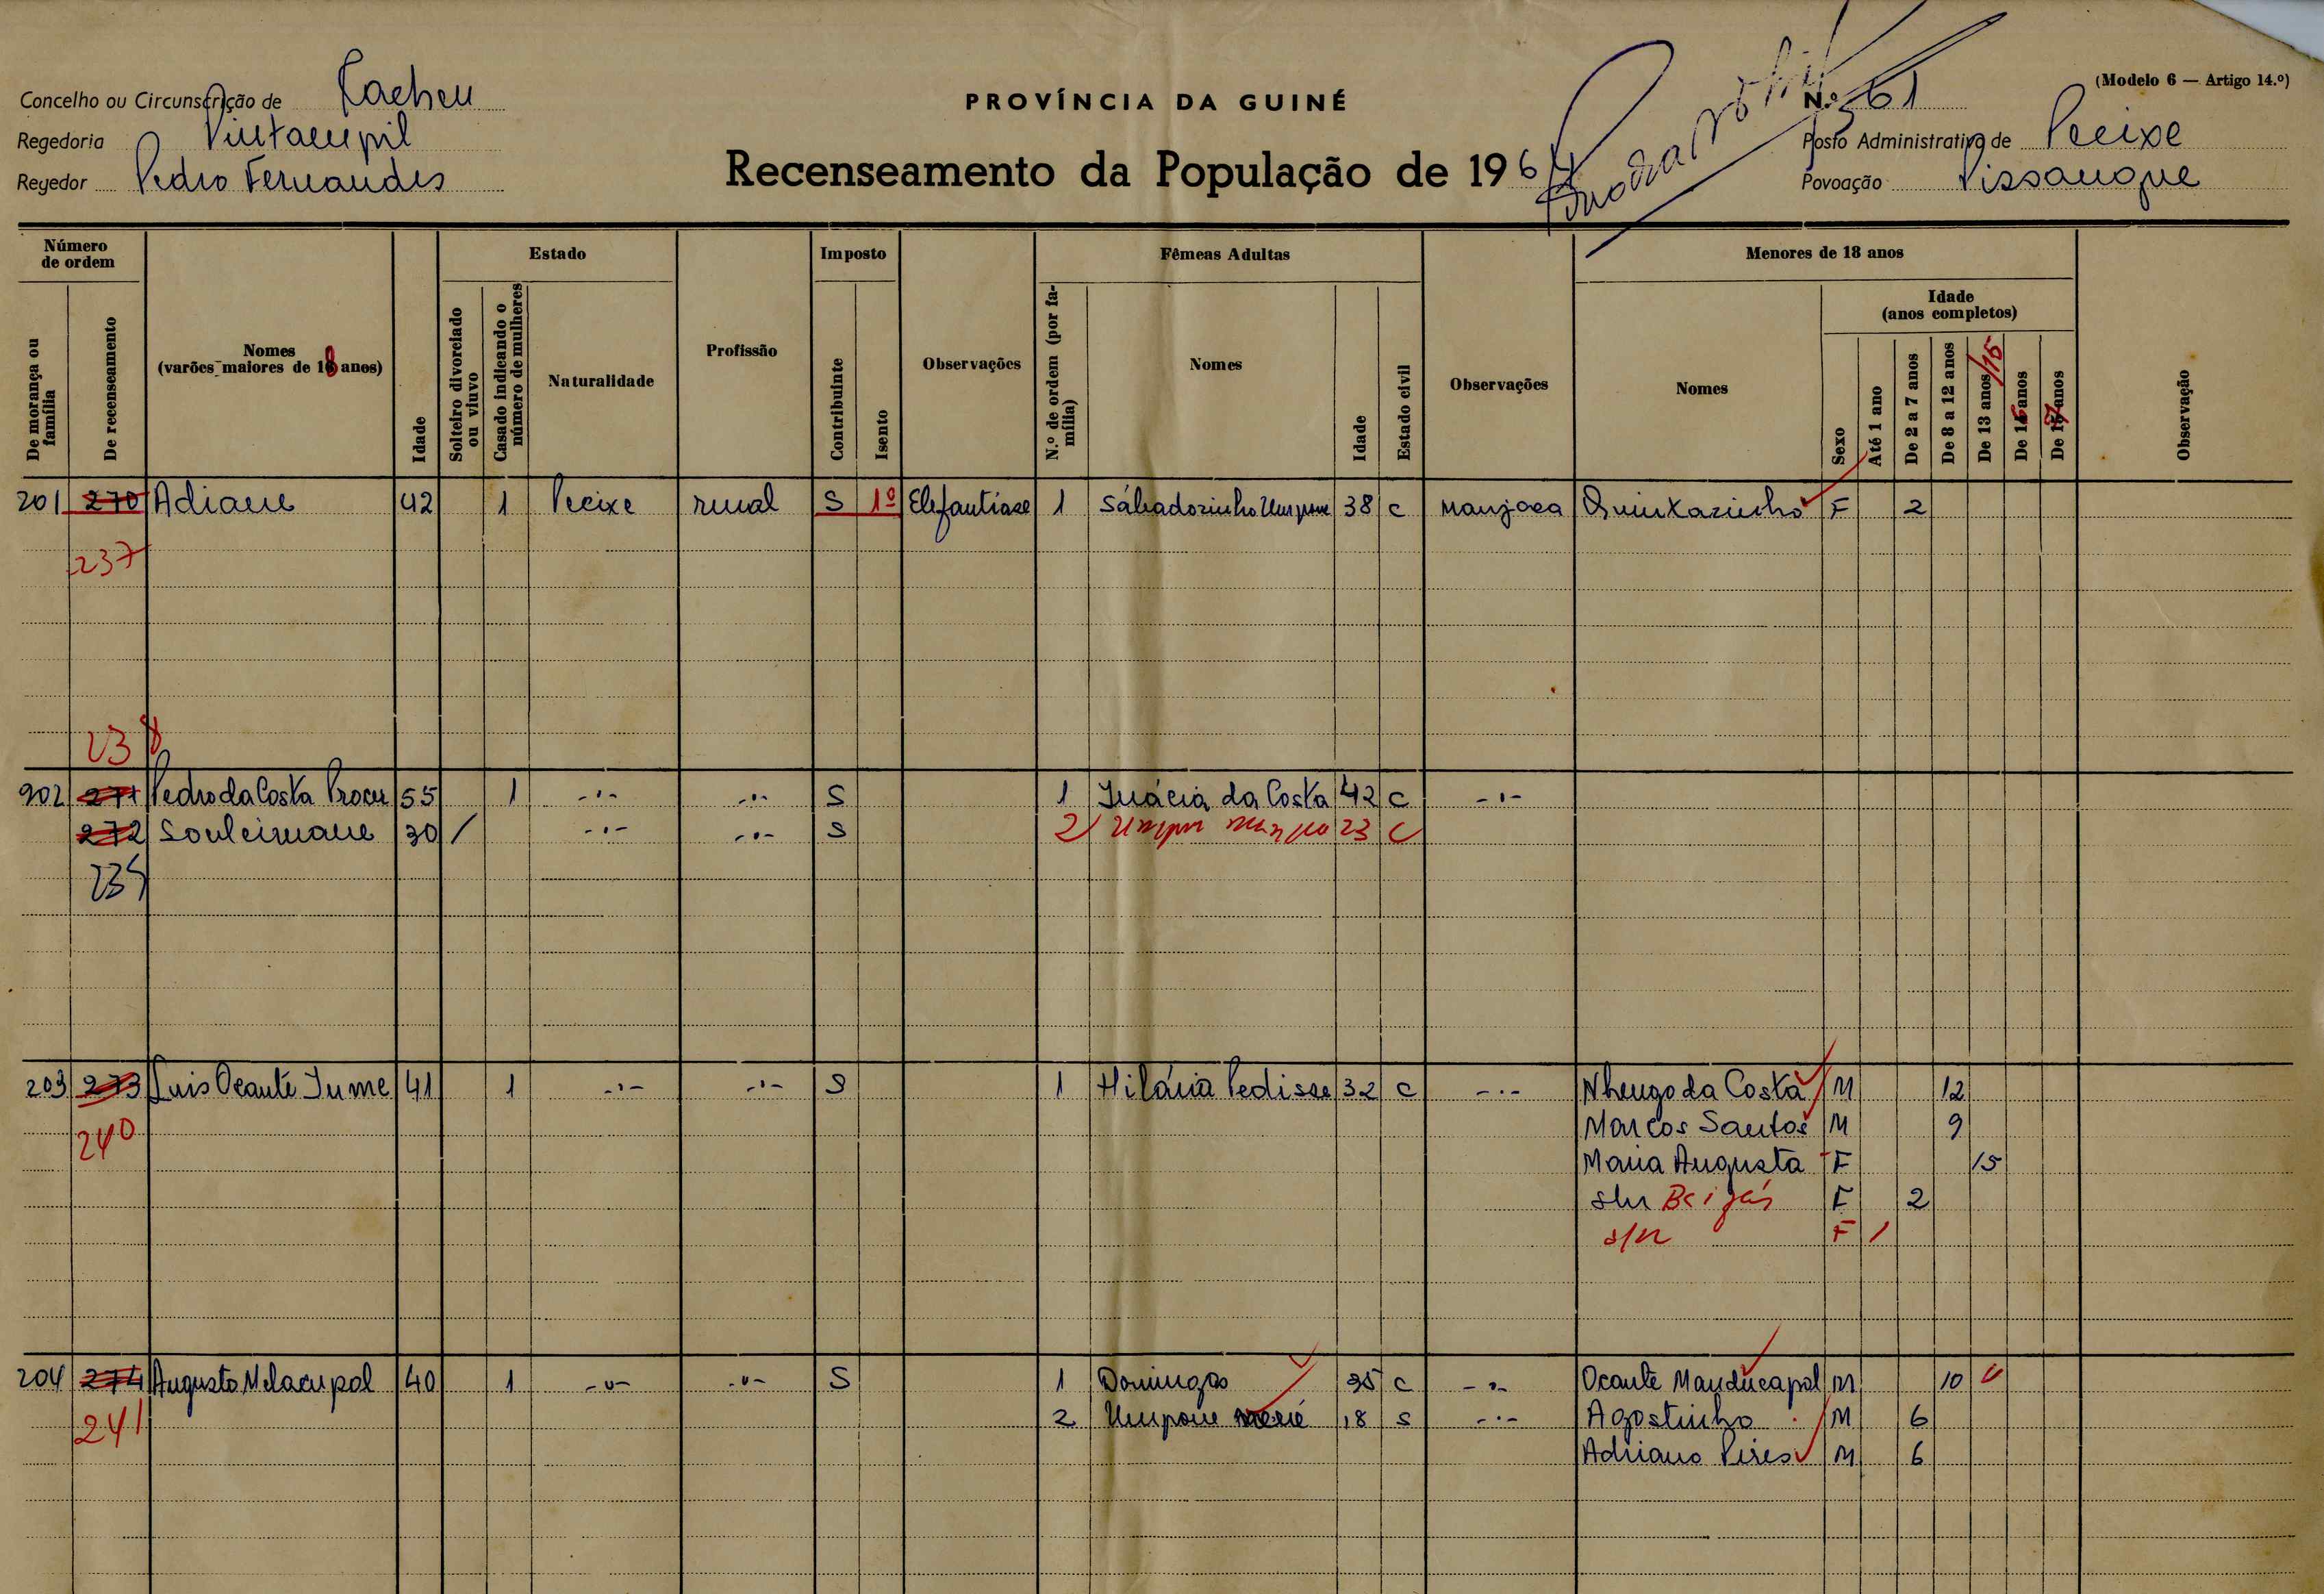 (Modelo 6 — Artigo 14.º)
Concelho ou Circunscrição de Cacheu
PROVÍNCIA DA GUINÉ
N.º 61
Regedoria
Posto Administrativo de Pecixe
Regedor Pedro Fernandes
Recenseamento da População de 1964
Povoação
Número de ordem
Estado
Imposto
Fêmeas Adultas
Menores de 18 anos
De morança ou família
De recenseamento
Nomes
(varões maiores de 18 anos)
Idade
Solteiro divorciado ou viuvo
Casado indicando o número de mulheres
Naturalidade
Profissão
Contribuinte
Isento
Observações
N.º de ordem (por família)
Nomes
Idade
Estado civil
Observações
Nomes
Sexo
Idade
(anos completos)
Até 1 ano
De 2 a 7 anos
De 8 a 12 anos
De 13 anos/15
De 16 anos
De 17 anos
Observação
201 270 Adiane 42 1 Pecixe rural S 1º Elefantiase 1 Sábadozinho Umpane 38 c Manjaca Quintazinho F 2
237
238
202 271 Pedro da Costa Procu 55 1 -"- -"- S 1 Inácia da Costa 42 c -"-
272 Souleimane 30 / -"- -"- S 2 23 C
239
203 273 Luis Ocante Jume 41 1 -"- -"- S 1 Hilária Pedisse 32 c -"- Nhengo da Costa M 12
240 Marcos Santos M 9
Maria Augusta F 15
s/n F 2
s/n F 1
204 274 Augusto 40 1 -"- -"- S 1 Domingas 35 c -"- Ocante Manducapol M 10
241 2 Umpane 18 s -"- Agostinho M 6
Adriano Pires M 6